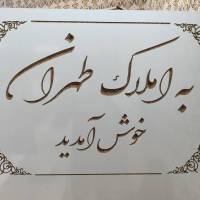 به املاک طهران
خوش آمدید